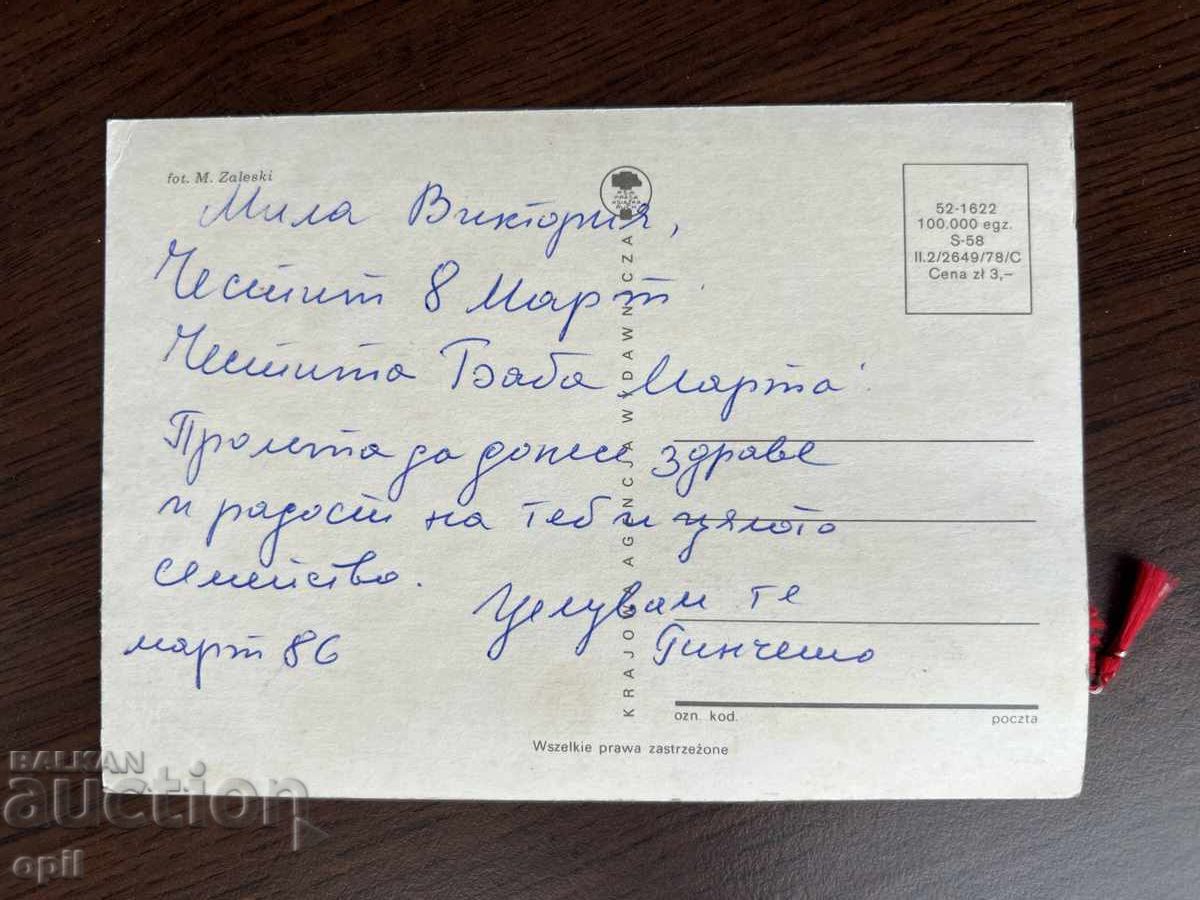 fot. M. Zaleski
Мила Виктория,
Честит 8 Март
Честита Баба Марта!
Пролетта да донесе здраве
и радост на теб и цялото
семейство.
Целувам те
март 86
KRAJOWA AGENCJA WYDAWNICZA
52-1622
100.000 egz.
S-58
II.2/2649/78/C
Cena zł 3,–
ozn. kod.
poczta
Wszelkie prawa zastrzeżone
BALKAN
auction
opil